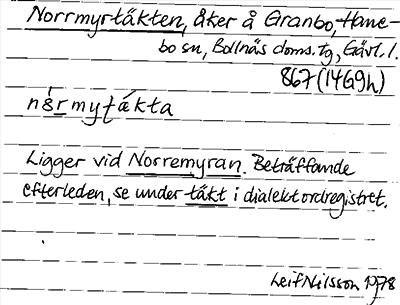 Norrmyrtäkten, åker å Granbo, Hane-
bo sn, Bollnäs doms. tg, Gävl. l.
867 (14G9h)
nɷ̀rmytákta
Ligger vid Norremyran. Beträffande
efterleden, se under täkt i dialektordregistret.
Leif Nilsson 1978